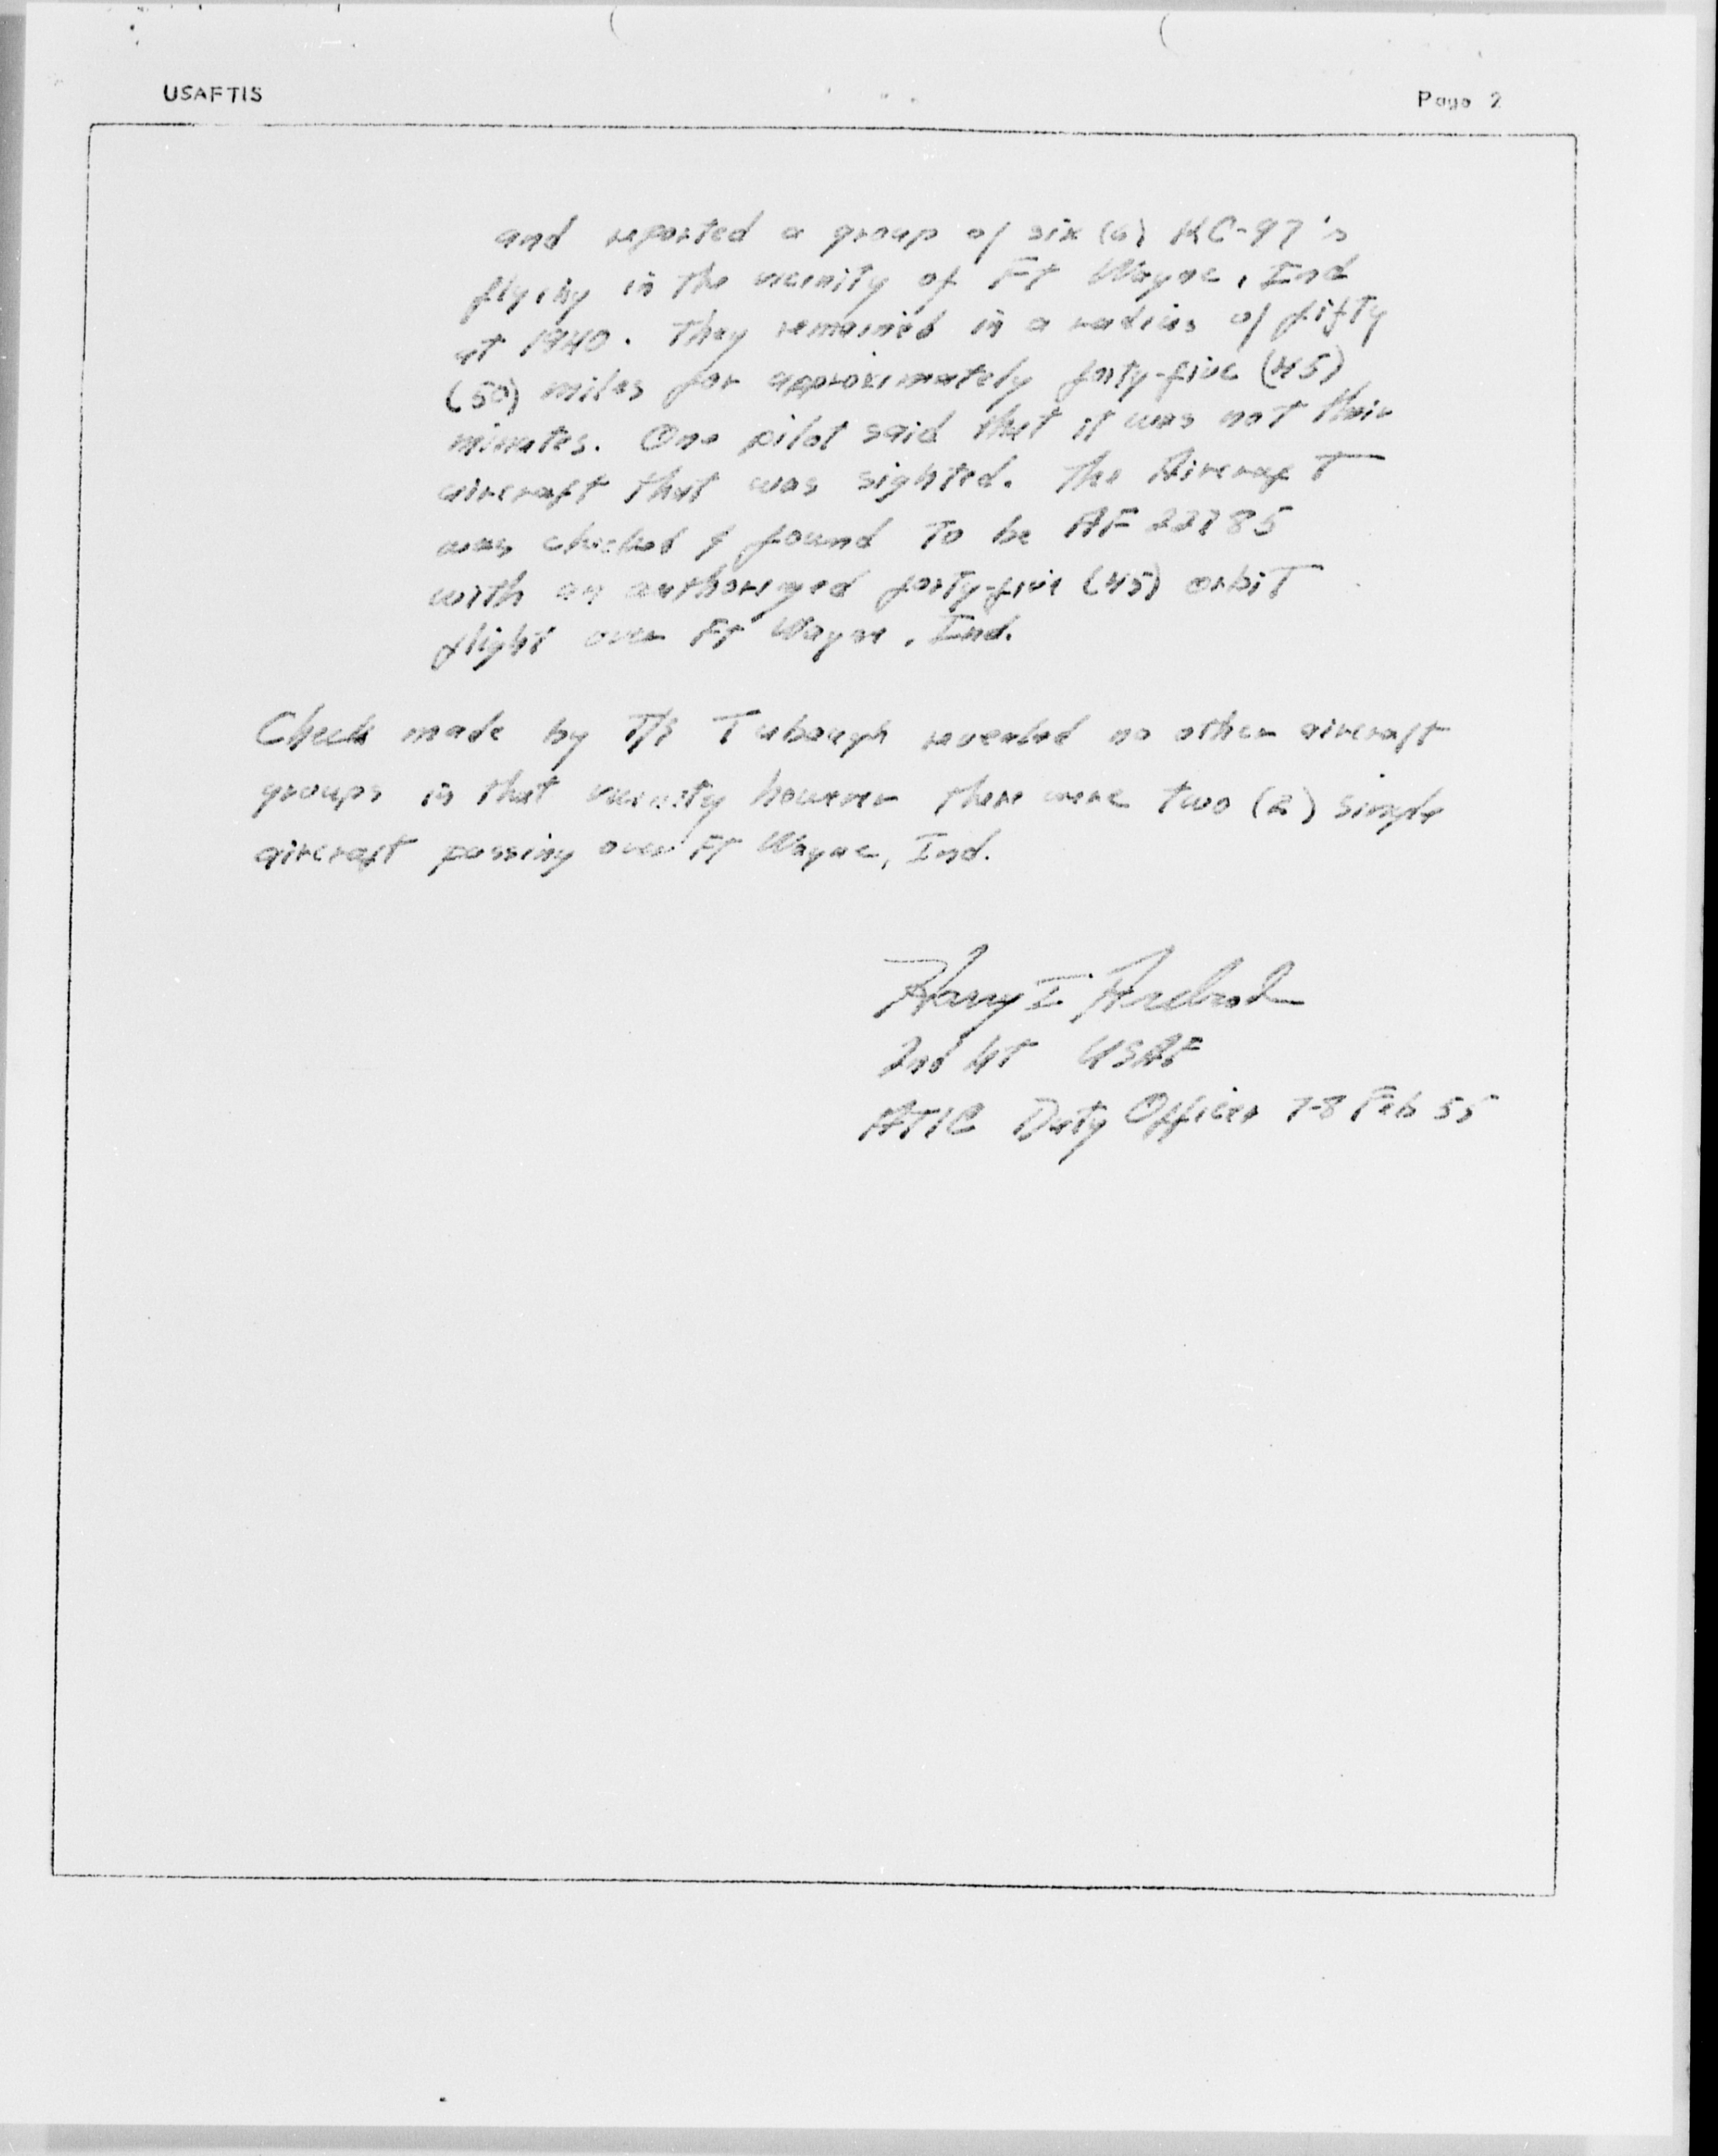 USAFTIS
Page 2
and reported a group of six (6) KC-97's
flying in the vicinity of Ft Wayne, Ind
at 1940. They remained in a radius of fifty
(50) miles for approximately forty-five (45)
minutes. One pilot said that it was not their
aircraft that was sighted. The Aircraft
was checked & found to be AF 22785
with an authorized forty-five (45) orbit
flight over Ft Wayne, Ind.
Check made by T/S revealed no other aircraft
groups in that vicinity however there were two (2) single
aircraft passing over Ft Wayne, Ind.
Harry I.
2nd Lt USAF
ATIC Duty Officer 7-8 Feb 55